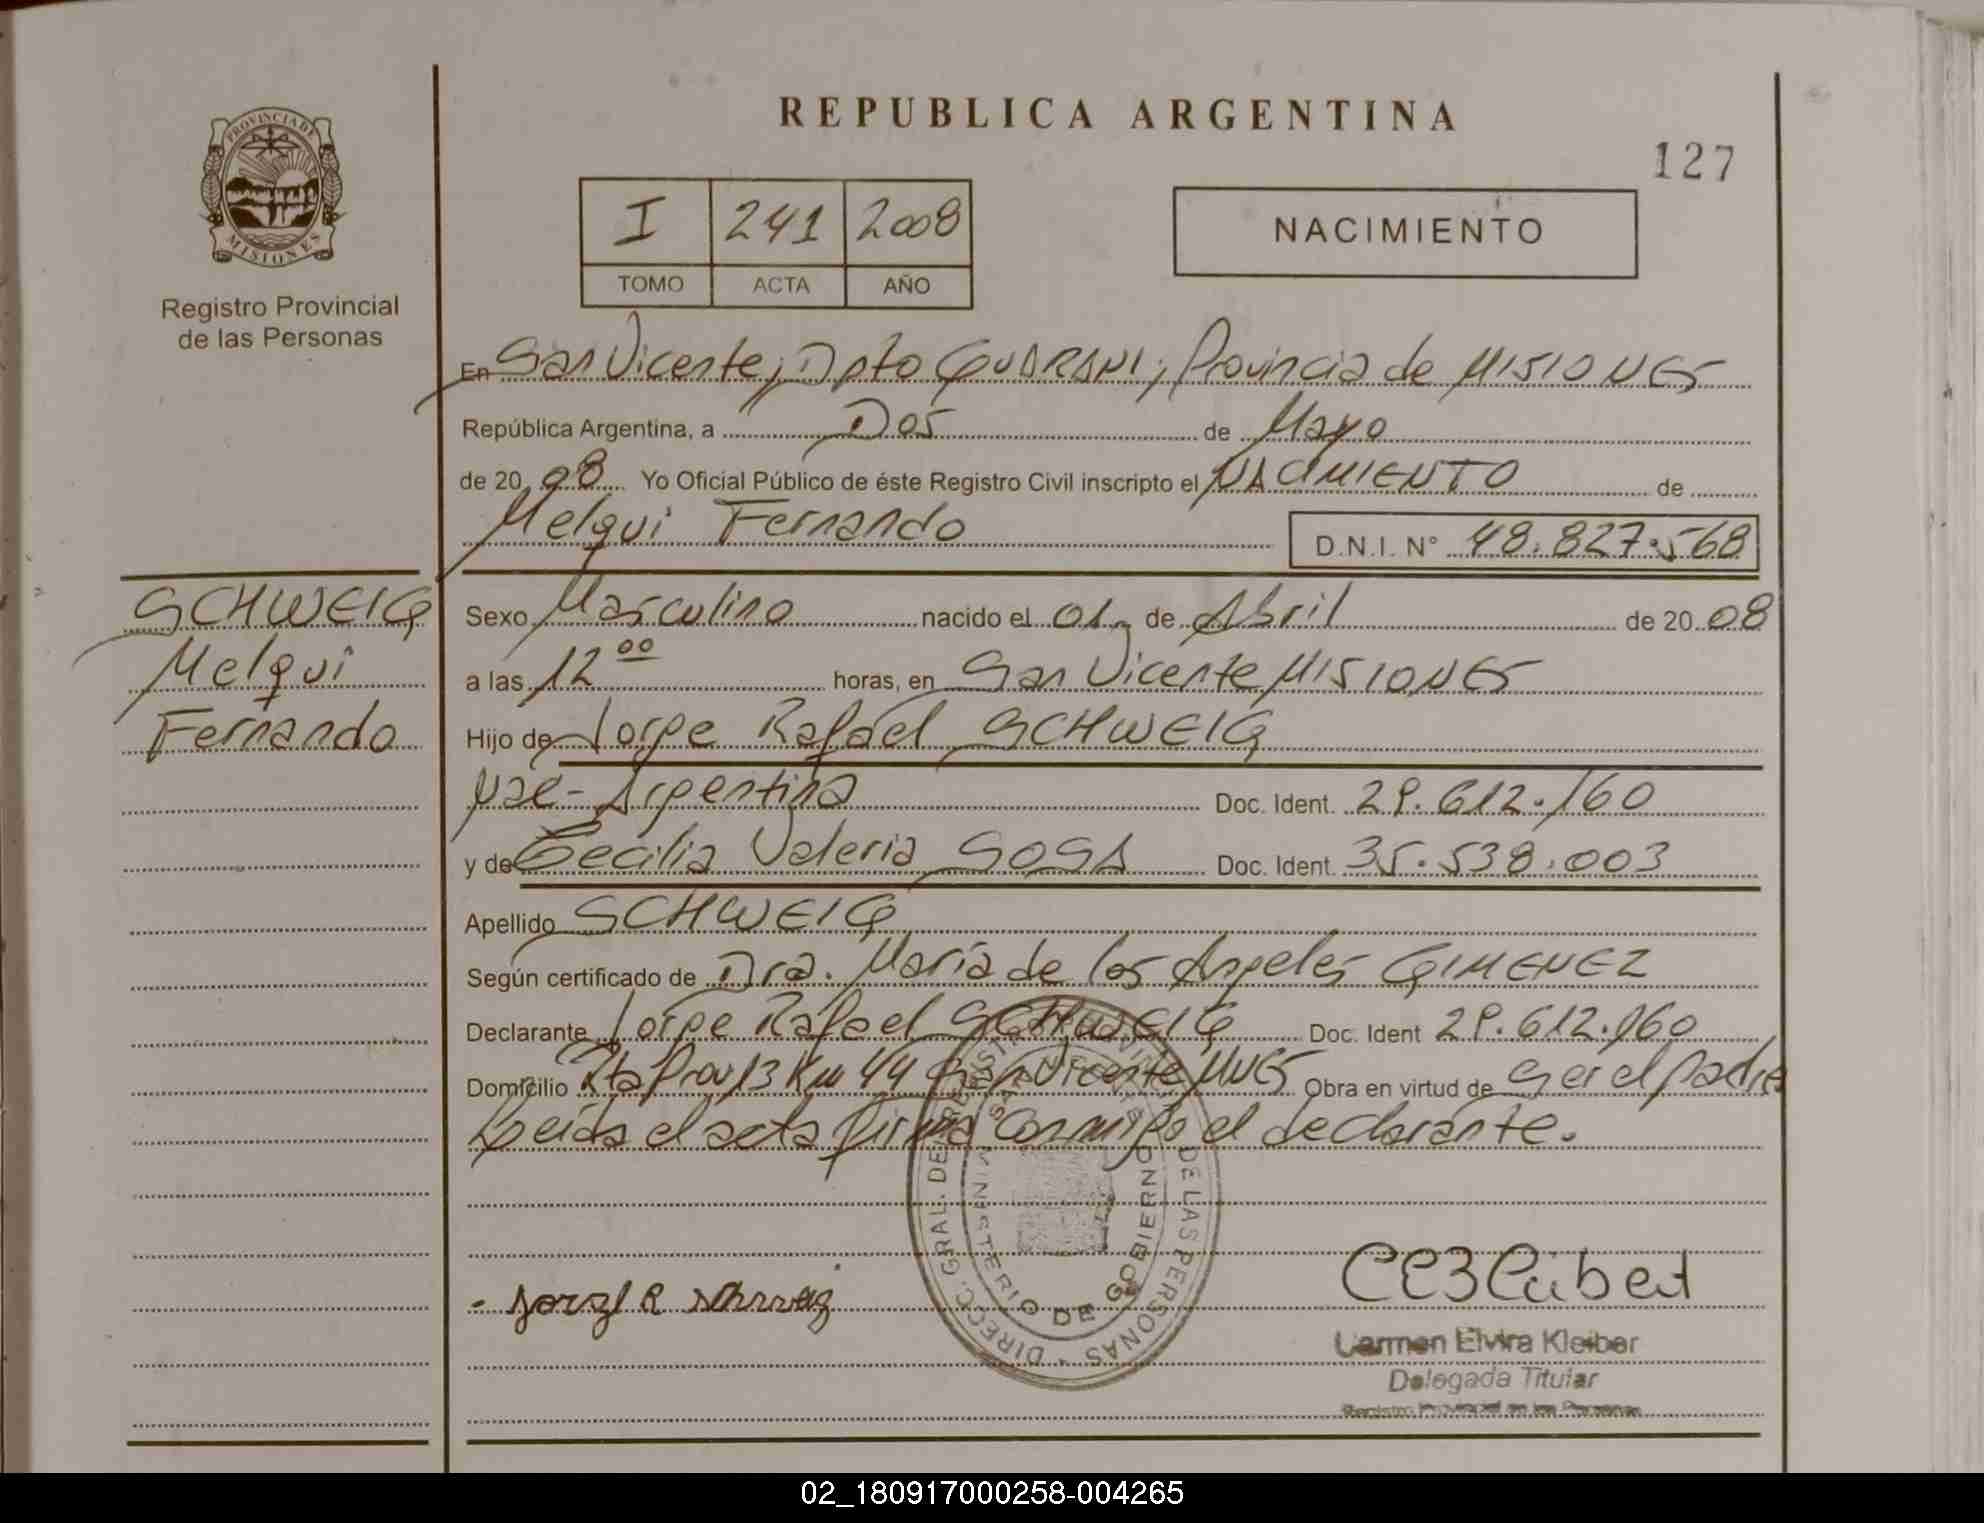 REPUBLICA ARGENTINA
127
PROVINCIA DE
MISIONES
Registro Provincial
de las Personas
I 241 2008
TOMO ACTA AÑO
NACIMIENTO
En San Vicente, Dpto GUARANI; Provincia de MISIONES
República Argentina, a Dos de Mayo
de 20 08 Yo Oficial Público de éste Registro Civil inscripto el NACIMIENTO de
Melqui Fernando D.N.I. N° 48.827.568
SCHWEIG
Melqui
Fernando
Sexo Masculino nacido el 01 de Abril de 20 08
a las 12 00 horas, en San Vicente MISIONES
Hijo de Jorge Rafael SCHWEIG
Nac- Argentina Doc. Ident. 29.612.160
y de Cecilia Valeria SOSA Doc. Ident. 35.538.003
Apellido SCHWEIG
Según certificado de Dra. María de los Angeles GIMENEZ
Declarante Jorge Rafael SCHWEIG Doc. Ident 29.612.160
Domicilio Rta Prov 13 Km 44 San Vicente MNES Obra en virtud de ser el padre
Leída el acta firma conmigo el declarante.
DIRECC. GRAL. DEL REGISTRO PROVINCIAL DE LAS PERSONAS -
MINISTERIO DE GOBIERNO
SAN VICENTE
Carmen Elvira Kleiber
Delegada Titular
Registro Provincial de las Personas
02_180917000258-004265